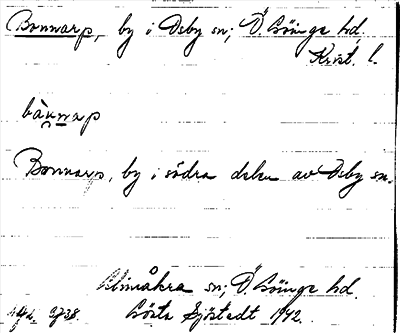 Bonnarp, by i Osby sn; Ö. Göinge hd,
Krist. l.
bànnap
Bonnarp, by i södra delen av Osby sn.
Glimåkra sn; Ö. Göinge hd.
Gösta Sjöstedt 1942.